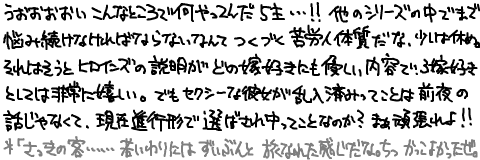 うおおおおい こんなところで何やってんだ5主…!! 他のシリーズの中でまで
悩み続けなければならないなんて つくづく苦労人体質だな、少しは休め。
それはそうと ヒロインズの説明が どの嫁好きにも優しい内容で、3嫁好き
としては非常に嬉しい。でもセクシーな彼女が乱入済みってことは前夜の
話じゃなくて、現在進行形で選ばされ中ってことなのか？ まぁ頑張れよ!!
*「さっきの客…… 若いわりには ずいぶんと 旅なれた感じだな。ちっ かっこよかったぜ。